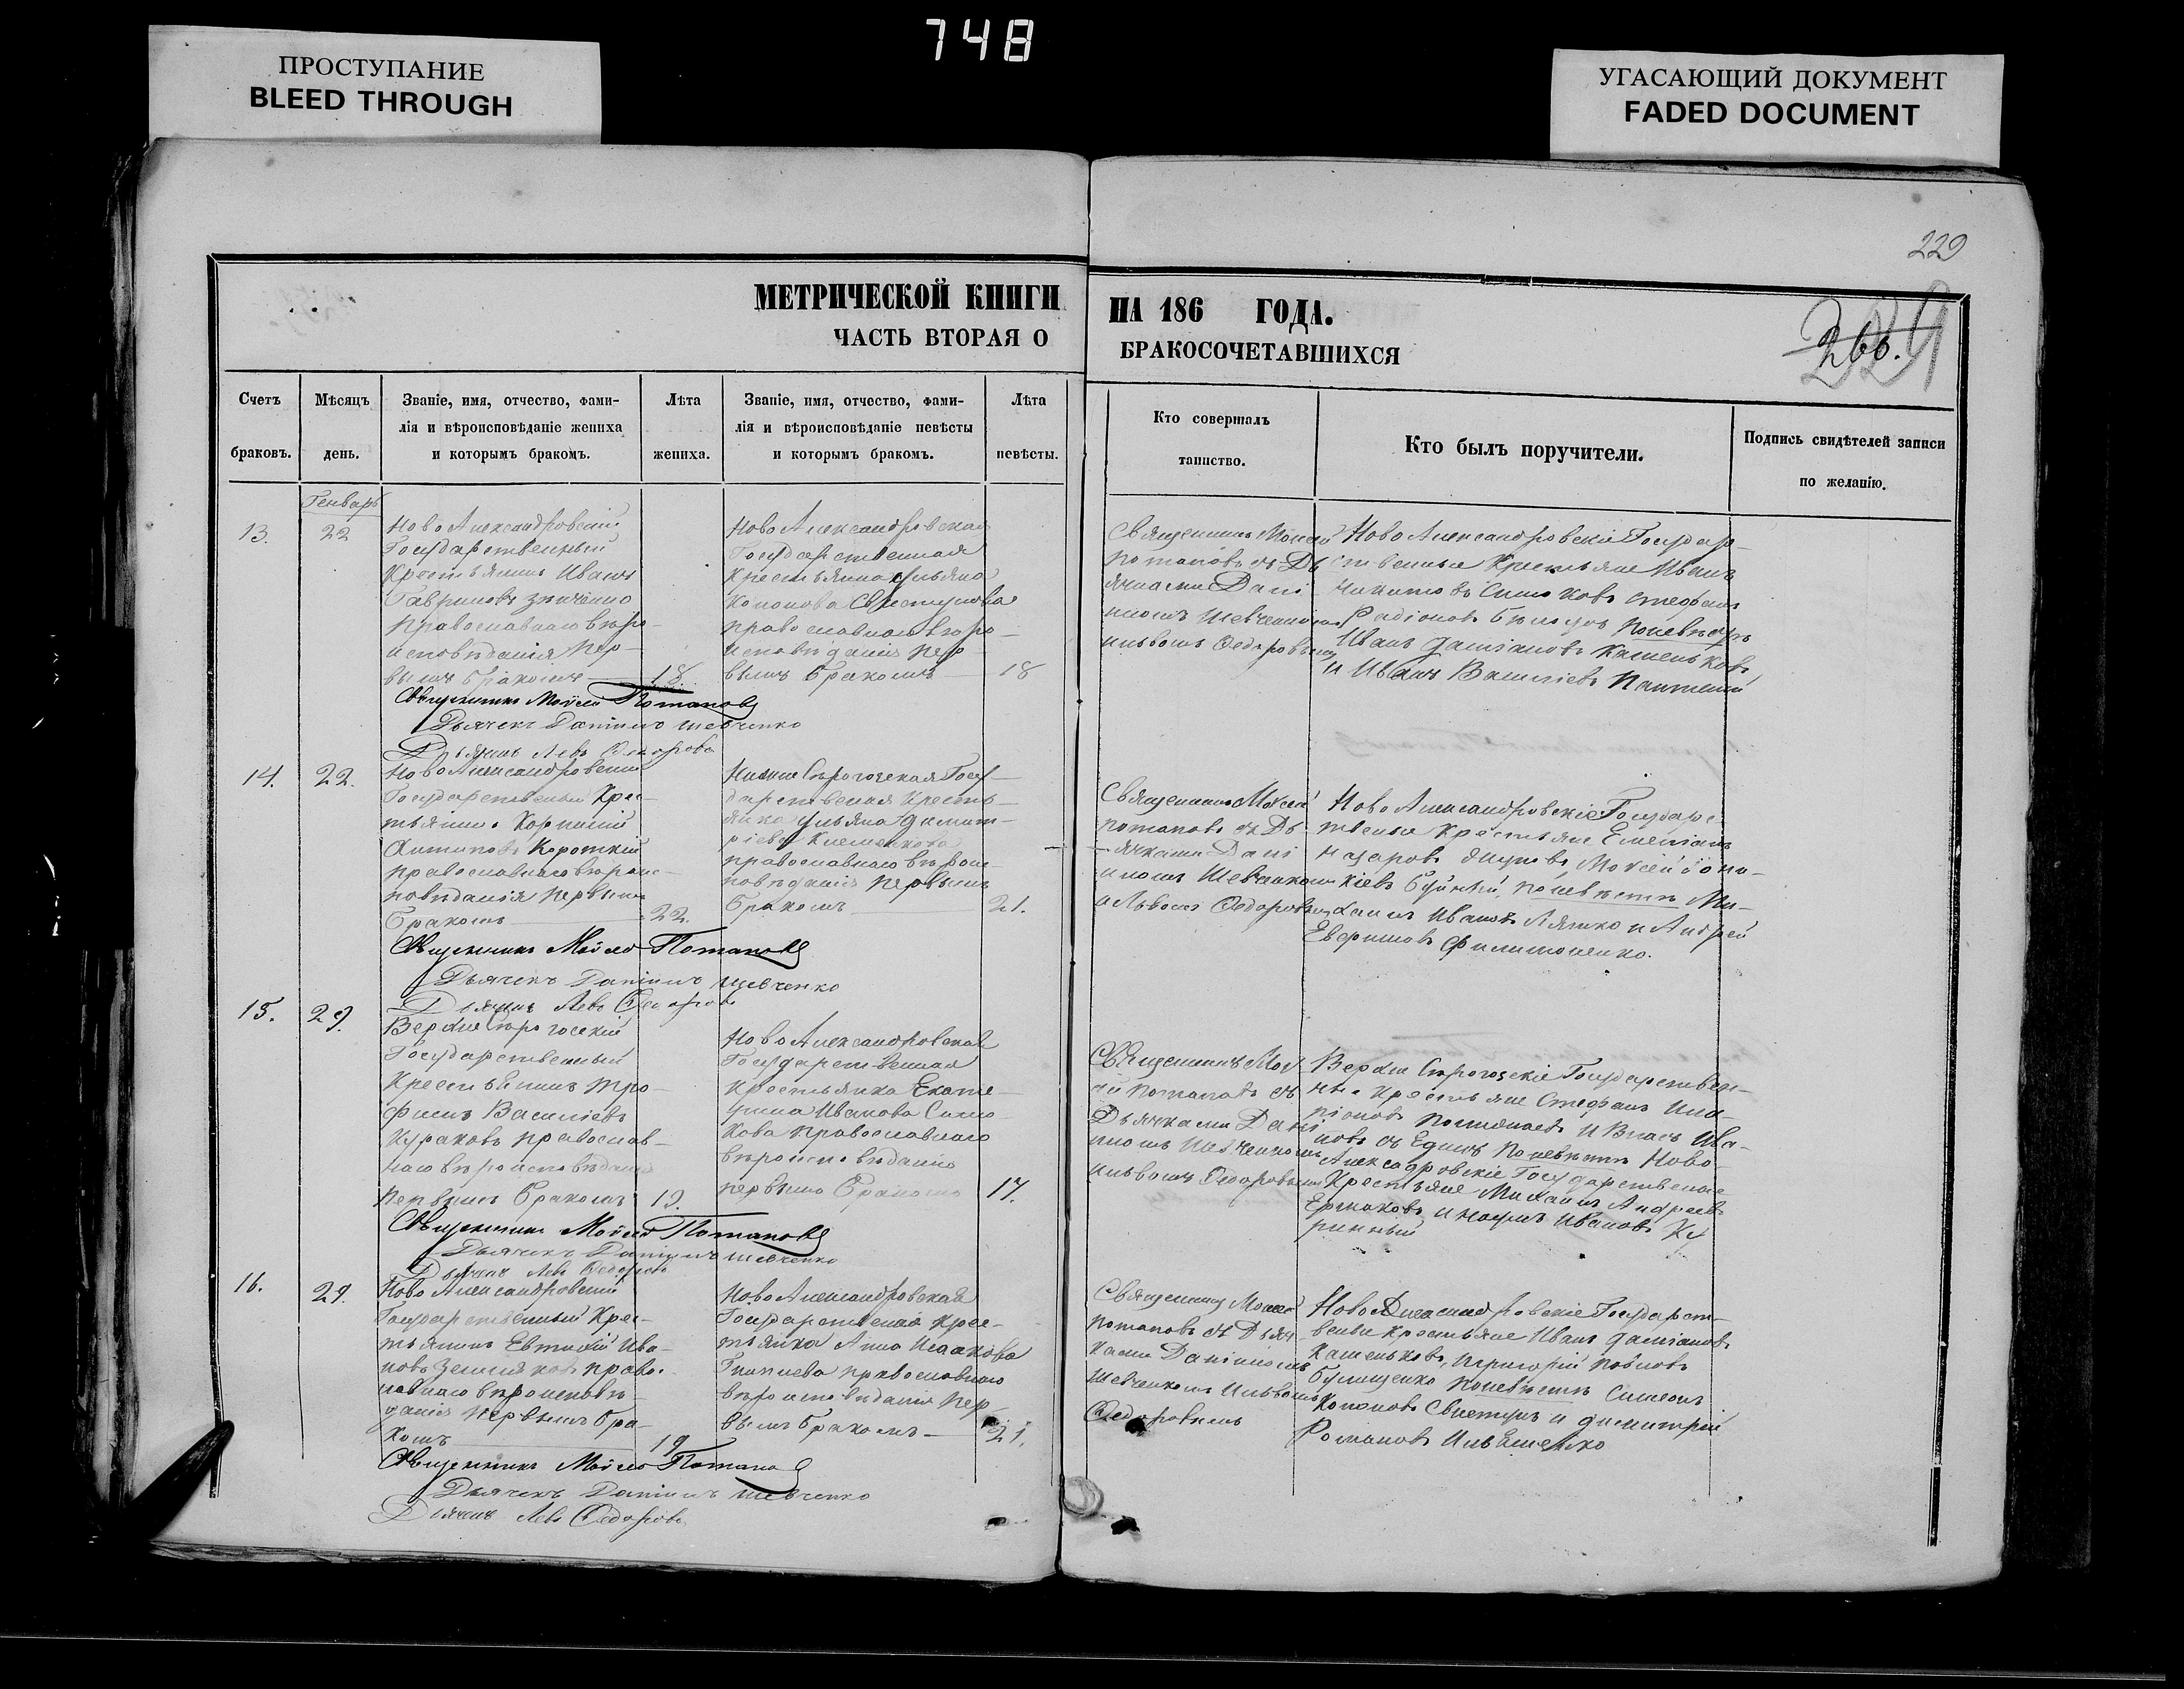 748
ПРОСТУПАНИЕ
BLEED THROUGH
УГАСАЮЩИЙ ДОКУМЕНТ
FADED DOCUMENT
229
266.
МЕТРИЧЕСКОЙ КНИГИ НА 186 ГОДА.
ЧАСТЬ ВТОРАЯ О БРАКОСОЧЕТАВШИХСЯ
Счетъ
браковъ.
Мѣсяцъ
день.
Званіе, имя, отчество, фами-
лія и вѣроисповѣданіе жениха
и которымъ бракомъ.
Лѣта
жениха.
Званіе, имя, отчество, фами-
лія и вѣроисповѣданіе невѣсты
и которымъ бракомъ.
Лѣта
невѣсты.
Кто совершалъ
таинство.
Кто былъ поручители.
Подпись свидѣтелей записи
по желанію.
Генварь
13.
22
Ново Александровскій
Государственный
Крестьянинъ Иванъ
Гавриловъ
православнаго вѣро-
исповѣданія пер-
вымъ бракомъ
18.
Ново Александровская
Государственная
Крестьянка Ульяна
Кононова Свистунова
православнаго вѣро-
исповѣданія пер-
вымъ бракомъ
18
Священникъ Моисей
Потаповъ съ Дь
ячками Дані
иломъ Шевченкомъ
и Львомъ Ѳедоровымъ
Ново Александровскіе Государ-
ственные Крестьяне Иванъ
Стефанъ
Радіоновъ по невѣстѣ
Иванъ Даміановъ Каменьковъ
и Иванъ Василіевъ
Священникъ Моисей Потаповъ
Дьячекъ Даніилъ Шевченко
Дьячекъ Левъ Ѳедоровъ
14.
22.
Ново Александровскій
Государственный Крес-
тьянинъ Корнилій
Антиповъ Короткій
православнаго вѣроис-
повѣданія первымъ
бракомъ
22.
Нижне Сѣрогозская Госу-
дарственная Кресть-
янка Ульяна Димит-
ріева Клименкова
православнаго вѣроис-
повѣданія первымъ
бракомъ
21.
Священникъ Моисей
Потаповъ съ Дь
ячками Дані
иломъ Шевченкомъ
и Львомъ Ѳедоровымъ
Ново Александровскіе Государс-
твенные Крестьяне Емеліанъ
Назаровъ Моисей
по невѣстѣ Ми-
хаилъ Ивановъ Ляшко и Андрей
Евфимовъ Филимоненко.
Священникъ Моисей Потаповъ
Дьячекъ Даніилъ Шевченко
Дьячекъ Левъ Ѳедоровъ
15.
29.
Верхне Сѣрогозскій
Государственный
Крестьянинъ Тро-
фимъ Василіевъ
Кураковъ православ-
наго вѣроисповѣданія
первымъ бракомъ
19.
Ново Александровская
Государственная
Крестьянка Екате-
рина Иванова Симо-
кова православнаго
вѣроисповѣданія
первымъ бракомъ
17.
Священникъ Мои
сей Потаповъ съ
Дьячками Дані
иломъ Шевченкомъ
и Львомъ Ѳедоровымъ
Верхне Сѣрогозскіе Государствен-
ные Крестьяне Стефанъ
и Власъ Ива-
новъ по невѣстѣ Ново-
Александровскіе Государственные
Крестьяне Михаилъ Андреевъ
Ермаковъ и Наумъ Ивановъ
Священникъ Моисей Потаповъ
Дьячекъ Даніилъ Шевченко
Дьячекъ Левъ Ѳедоровъ
16.
29.
Ново Александровскій
Государственный Крес-
тьянинъ Евтихій Ива-
новъ Земляковъ правос-
лавнаго вѣроисповѣ-
данія первымъ бра-
комъ
19
Ново Александровская
Государственная Крес-
тьянка Анна Исаакова
православнаго
вѣроисповѣданія пер-
вымъ бракомъ
21.
Священникъ Моисей
Потаповъ съ Дьяч-
ками Даніиломъ
Шевченкомъ и Львомъ
Ѳедоровымъ
Ново Александровскіе Государст-
венные Крестьяне Иванъ Даміановъ
Каменьковъ, и Григорій Павловъ
по невѣстѣ Симеонъ
Кононовъ Свистунъ и Димитрій
Романовъ Ильяшенко
Священникъ Моисей Потаповъ
Дьячекъ Даніилъ Шевченко
Дьячекъ Левъ Ѳедоровъ